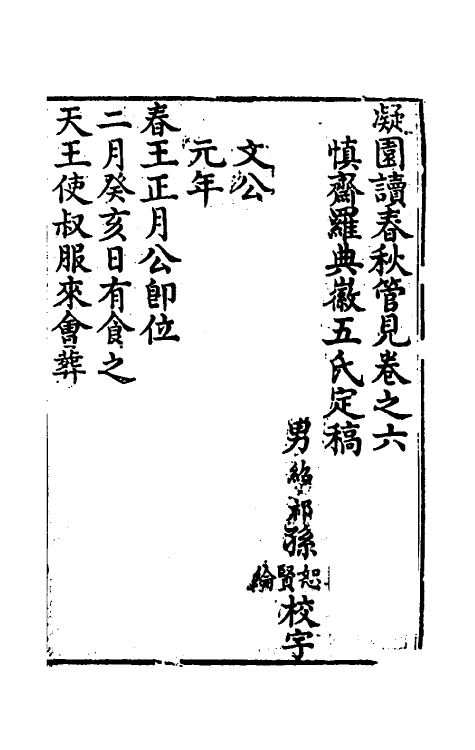 凝園讀春秋管見卷之六
慎齋羅典徽五氏定稿
男紹祁孫恕賢綸校字
文公
元年
春王正月公卽位
二月癸亥日有食之
天王使叔服來會葬